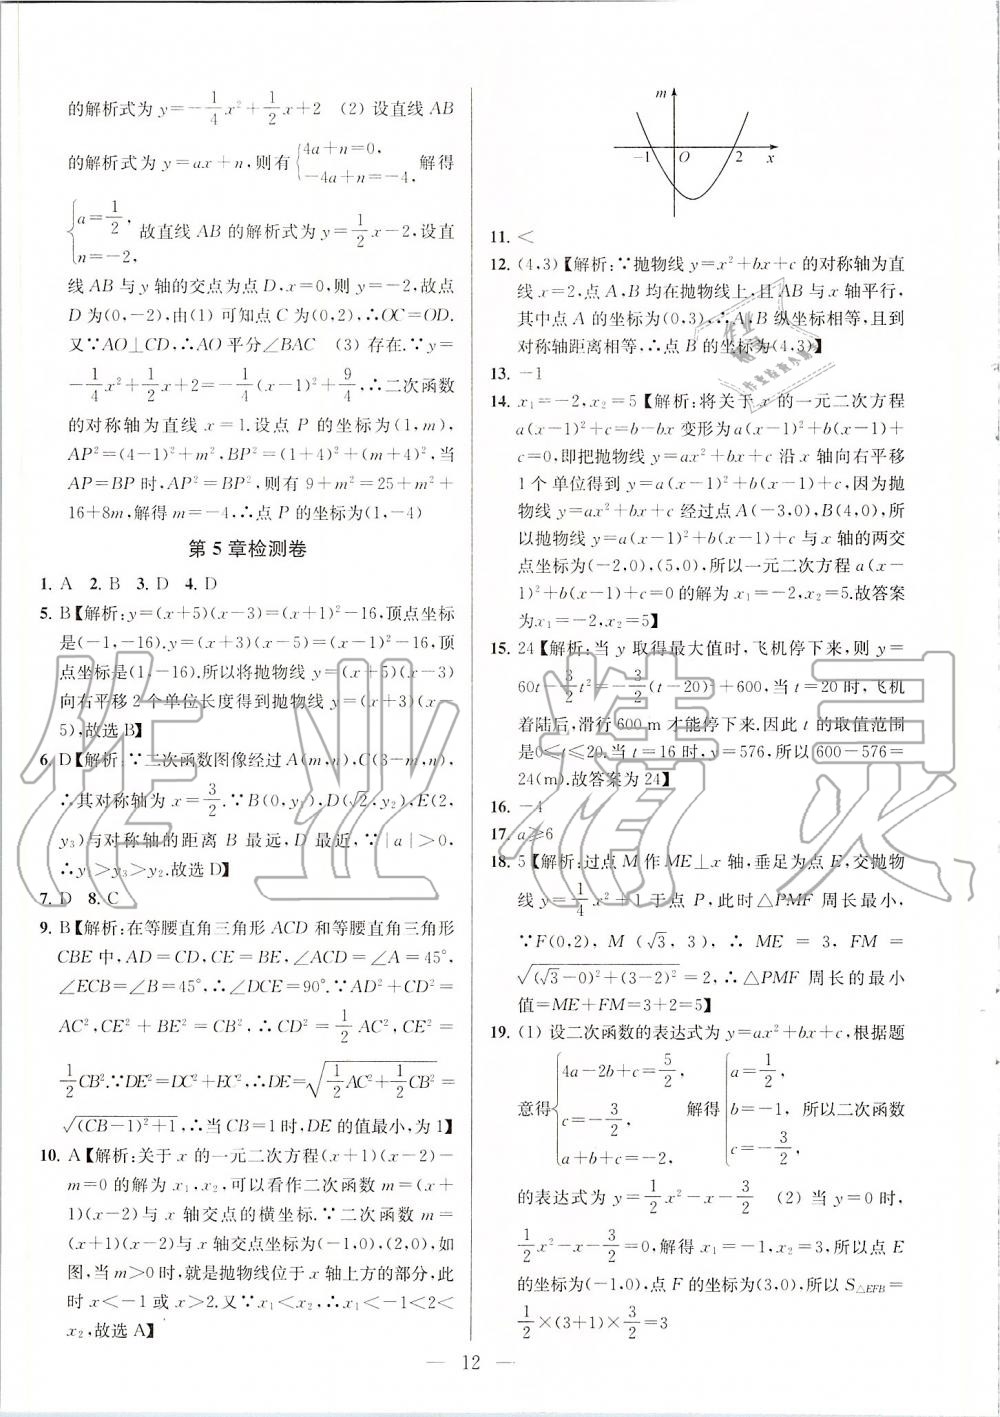 的解析式为 y=-1/4x²+1/2x+2 (2) 设直线 AB
的解析式为 y=ax+n,则有{4a+n=0, -4a+n=-4, 解得
{a=1/2, n=-2, 故直线 AB 的解析式为 y=1/2x-2,设直
线 AB 与 y 轴的交点为点 D,x=0,则 y=-2,故点
D 为(0,-2),由(1) 可知点 C 为(0,2),∴OC=OD.
又∵AO⊥CD,∴AO 平分∠BAC (3) 存在.∵y=
-1/4x²+1/2x+2=-1/4(x-1)²+9/4,∴二次函数
的对称轴为直线 x=1.设点 P 的坐标为(1,m),
AP²=(4-1)²+m²,BP²=(1+4)²+(m+4)²,当
AP=BP 时,AP²=BP²,则有 9+m²=25+m²+
16+8m,解得 m=-4,∴点 P 的坐标为(1,-4)
第 5 章检测卷
1. A 2. B 3. D 4. D
5. B【解析:y=(x+5)(x-3)=(x+1)²-16,顶点坐标
是(-1,-16).y=(x+3)(x-5)=(x-1)²-16,顶
点坐标是(1,-16).所以将抛物线 y=(x+5)(x-3)
向右平移 2 个单位长度得到抛物线 y=(x+3)(x-
5),故选 B】
6. D【解析:∵二次函数图像经过 A(m,n),C(3-m,n),
∴其对称轴为 x=3/2.∵B(0,y₁),D(√2,y₂),E(2,
y₃)与对称轴的距离 B 最远,D 最近,∵|a|>0,
∴y₁>y₃>y₂.故选 D】
7. D 8. C
9. B【解析:在等腰直角三角形 ACD 和等腰直角三角形
CBE 中,AD=CD,CE=BE,∠ACD=∠A=45°,
∠ECB=∠B=45°,∴∠DCE=90°.∵AD²+CD²=
AC²,CE²+BE²=CB²,∴CD²=1/2AC²,CE²=
1/2CB².∵DE²=DC²+EC²,∴DE=√(1/2AC²+1/2CB²)=
√((CB-1)²+1),∴当 CB=1 时,DE 的值最小,为 1】
10. A【解析:关于 x 的一元二次方程(x+1)(x-2)-
m=0 的解为 x₁,x₂,可以看作二次函数 m=(x+
1)(x-2)与 x 轴交点的横坐标.∵二次函数 m=
(x+1)(x-2)与 x 轴交点坐标为(-1,0),(2,0),如
图,当 m>0 时,就是抛物线位于 x 轴上方的部分,此
时 x<-1 或 x>2.又∵x₁<x₂,∴x₁<-1<2<
x₂,故选 A】
m
-1 O 2 x
11. <
12. (4,3)【解析:∵抛物线 y=x²+bx+c 的对称轴为直
线 x=2,点 A,B 均在抛物线上,且 AB 与 x 轴平行,
其中点 A 的坐标为(0,3),∴A,B 纵坐标相等,且到
对称轴距离相等,∴点 B 的坐标为(4,3)】
13. -1
14. x₁=-2,x₂=5【解析:将关于 x 的一元二次方程
a(x-1)²+c=b-bx 变形为a(x-1)²+b(x-1)+
c=0,即把抛物线 y=ax²+bx+c 沿 x 轴向右平移
1 个单位得到 y=a(x-1)²+b(x-1)+c,因为抛
物线 y=ax²+bx+c 经过点 A(-3,0),B(4,0),所
以抛物线 y=a(x-1)²+b(x-1)+c 与 x 轴的两交
点坐标为(-2,0),(5,0),所以一元二次方程 a(x-
1)²+b(x-1)+c=0 的解为 x₁=-2,x₂=5.故答案
为x₁=-2,x₂=5】
15. 24【解析:当 y 取得最大值时,飞机停下来,则 y=
60t-3/2t²=-3/2(t-20)²+600,当 t=20 时,飞机
着陆后,滑行 600 m 才能停下来.因此 t 的取值范围
是0≤t≤20.当 t=16 时,y=576,所以 600-576=
24(m).故答案为 24】
16. -4
17. a≥6
18. 5【解析:过点 M 作 ME⊥x 轴,垂足为点 E,交抛物
线 y=1/4x²+1 于点 P,此时△PMF 周长最小,
∵F(0,2),M(√3,3),∴ME=3,FM=
√((√3-0)²+(3-2)²)=2,∴△PMF 周长的最小
值=ME+FM=3+2=5】
19. (1) 设二次函数的表达式为 y=ax²+bx+c,根据题
意得{4a-2b+c=5/2, c=-3/2, a+b+c=-2, 解得{a=1/2, b=-1, c=-3/2, 所以二次函数
的表达式为 y=1/2x²-x-3/2 (2) 当 y=0 时,
1/2x²-x-3/2=0,解得 x₁=-1,x₂=3,所以点 E
的坐标为(-1,0),点 F 的坐标为(3,0),所以 S△EFB=
1/2×(3+1)×3/2=3
— 12 —
作业精灵